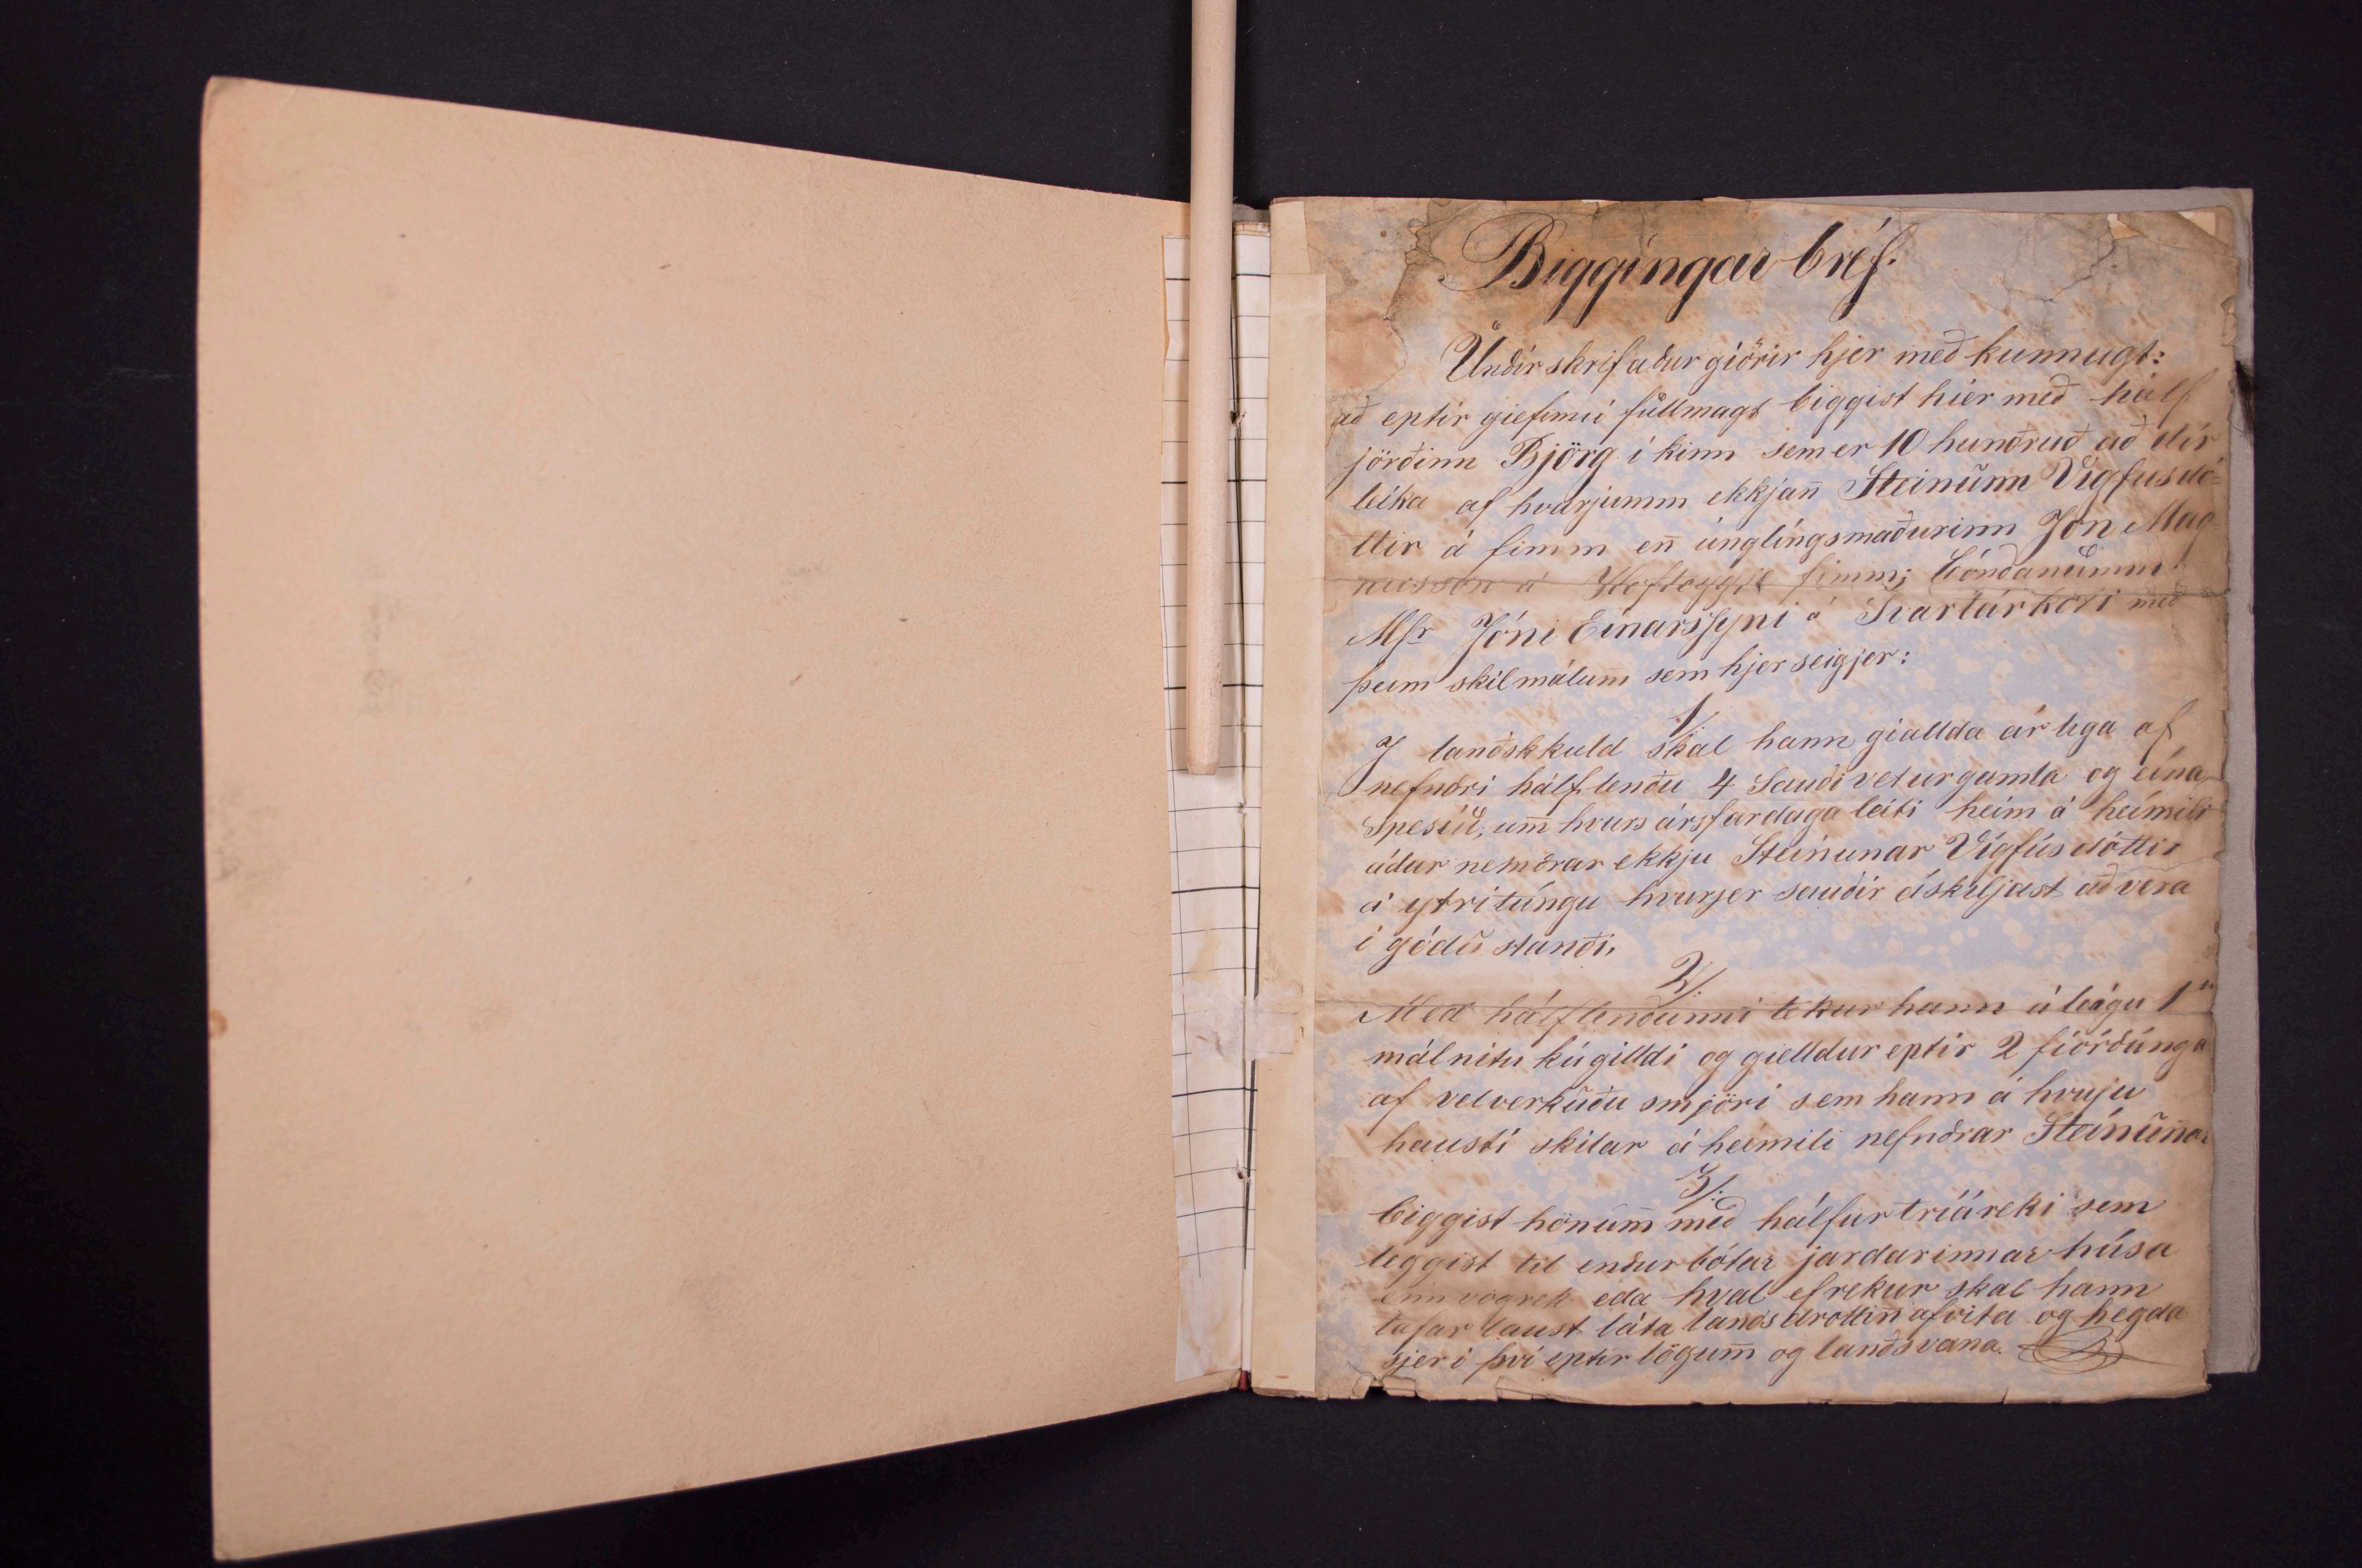 Biggingar bréf.
Undir skrifadur giörir hjer með kunnugt:
að eptir giefinni fullmagt biggist hier með hálf
jörðinn Björg í kinn sem er 10 hundruð að dír
leika af hvorjumm ekkjan̄ Steinunn Vigfusdó=
ttir á fimm en̄ únglíngsmaðurinn Jón Mag
nusson á fimm; bóndanumm
Mṡr Jóni Einarssyni á Svartárkoti með
þeim skilmálum̄ sem hjer seigjer:
1/.
J landskkuld skal hann giallda árlega af
nefndri hálflendu 4 Saudi veturgamla og eína
Spesíu, um̄ hvurs ársfardaga leiti heim á heimili
ádur nefndrar ekkju Steinunar Vígfúsdóttir
á ytritúngu hvurjer saudir áskiljast að vera
í gódu standi.
2/.
Med hálflendunni tekur hann á leágu 1
málnitu kúgilldi og gielldur eptir 2 fiórdúnga
af velverkuðu smjöri sem hann á hvuju
hausti skilar á heímili nefndrar Steínun̄ar
3/.
biggist hönum̄ með hálfur tríáreki sem
leggist til endurbótar jardarinnar húsa
enn vogrek eda hval ef rekur skal hann
tafar laust láta landsdrottin̄ af vita og hegda
sjer í því eptir lögum̄ og landsvana.